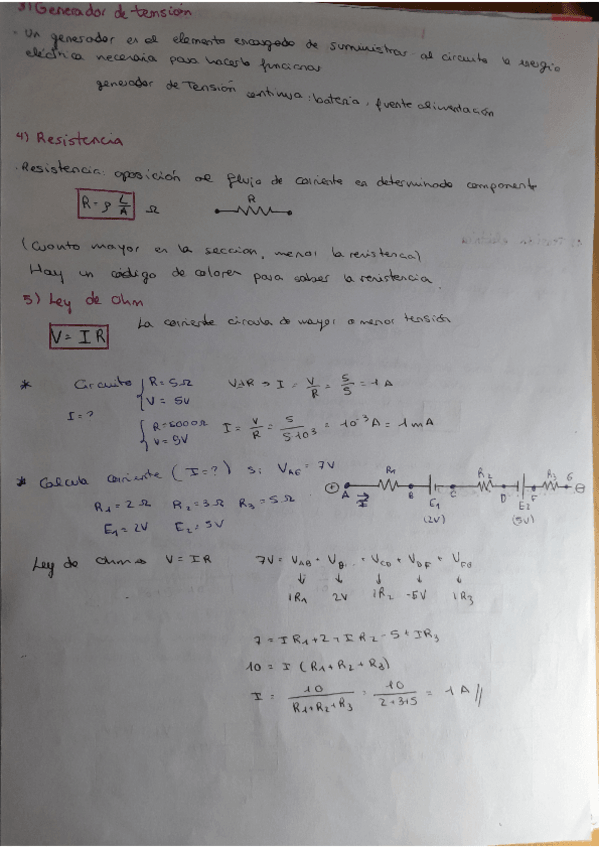 3) Generador de tensión
· Un generador es el elemento encargado de suministrar al circuito la energía
eléctrica necesaria para hacerlo funcionar
generador de Tensión continua: batería, fuente alimentación
4) Resistencia
· Resistencia: oposición al flujo de corriente en determinado componente
R = ρ L/A Ω
R
(Cuanto mayor es la seccion, menor la resistencia)
Hay un código de colores para saber la resistencia.
5) Ley de Ohm
V = I R
La corriente circula de mayor a menor tensión
* Circuito { R = 5 Ω V = IR → I = V/R = 5/5 = 1 A
V = 5V
I = ?
{ R = 5000 Ω I = V/R = 5/5·10³ = 10⁻³ A = 1 mA
V = 5V
* Calcula corriente (I = ?) si VAG = 7V
R1 = 2 Ω R2 = 3 Ω R3 = 5 Ω
E1 = 2V E2 = 5V
R1 R2 R3 G
+ A B C D F -
I E1 E2
(2V) (5V)
Ley de Ohm → V = IR 7V = VAB + VB + VCD + VDF + VFG
↓ ↓ ↓ ↓ ↓
IR1 2V IR2 -5V IR3
7 = IR1 + 2 + IR2 - 5 + IR3
10 = I (R1 + R2 + R3)
I = 10/(R1+R2+R3) = 10/(2+3+5) = 1 A //